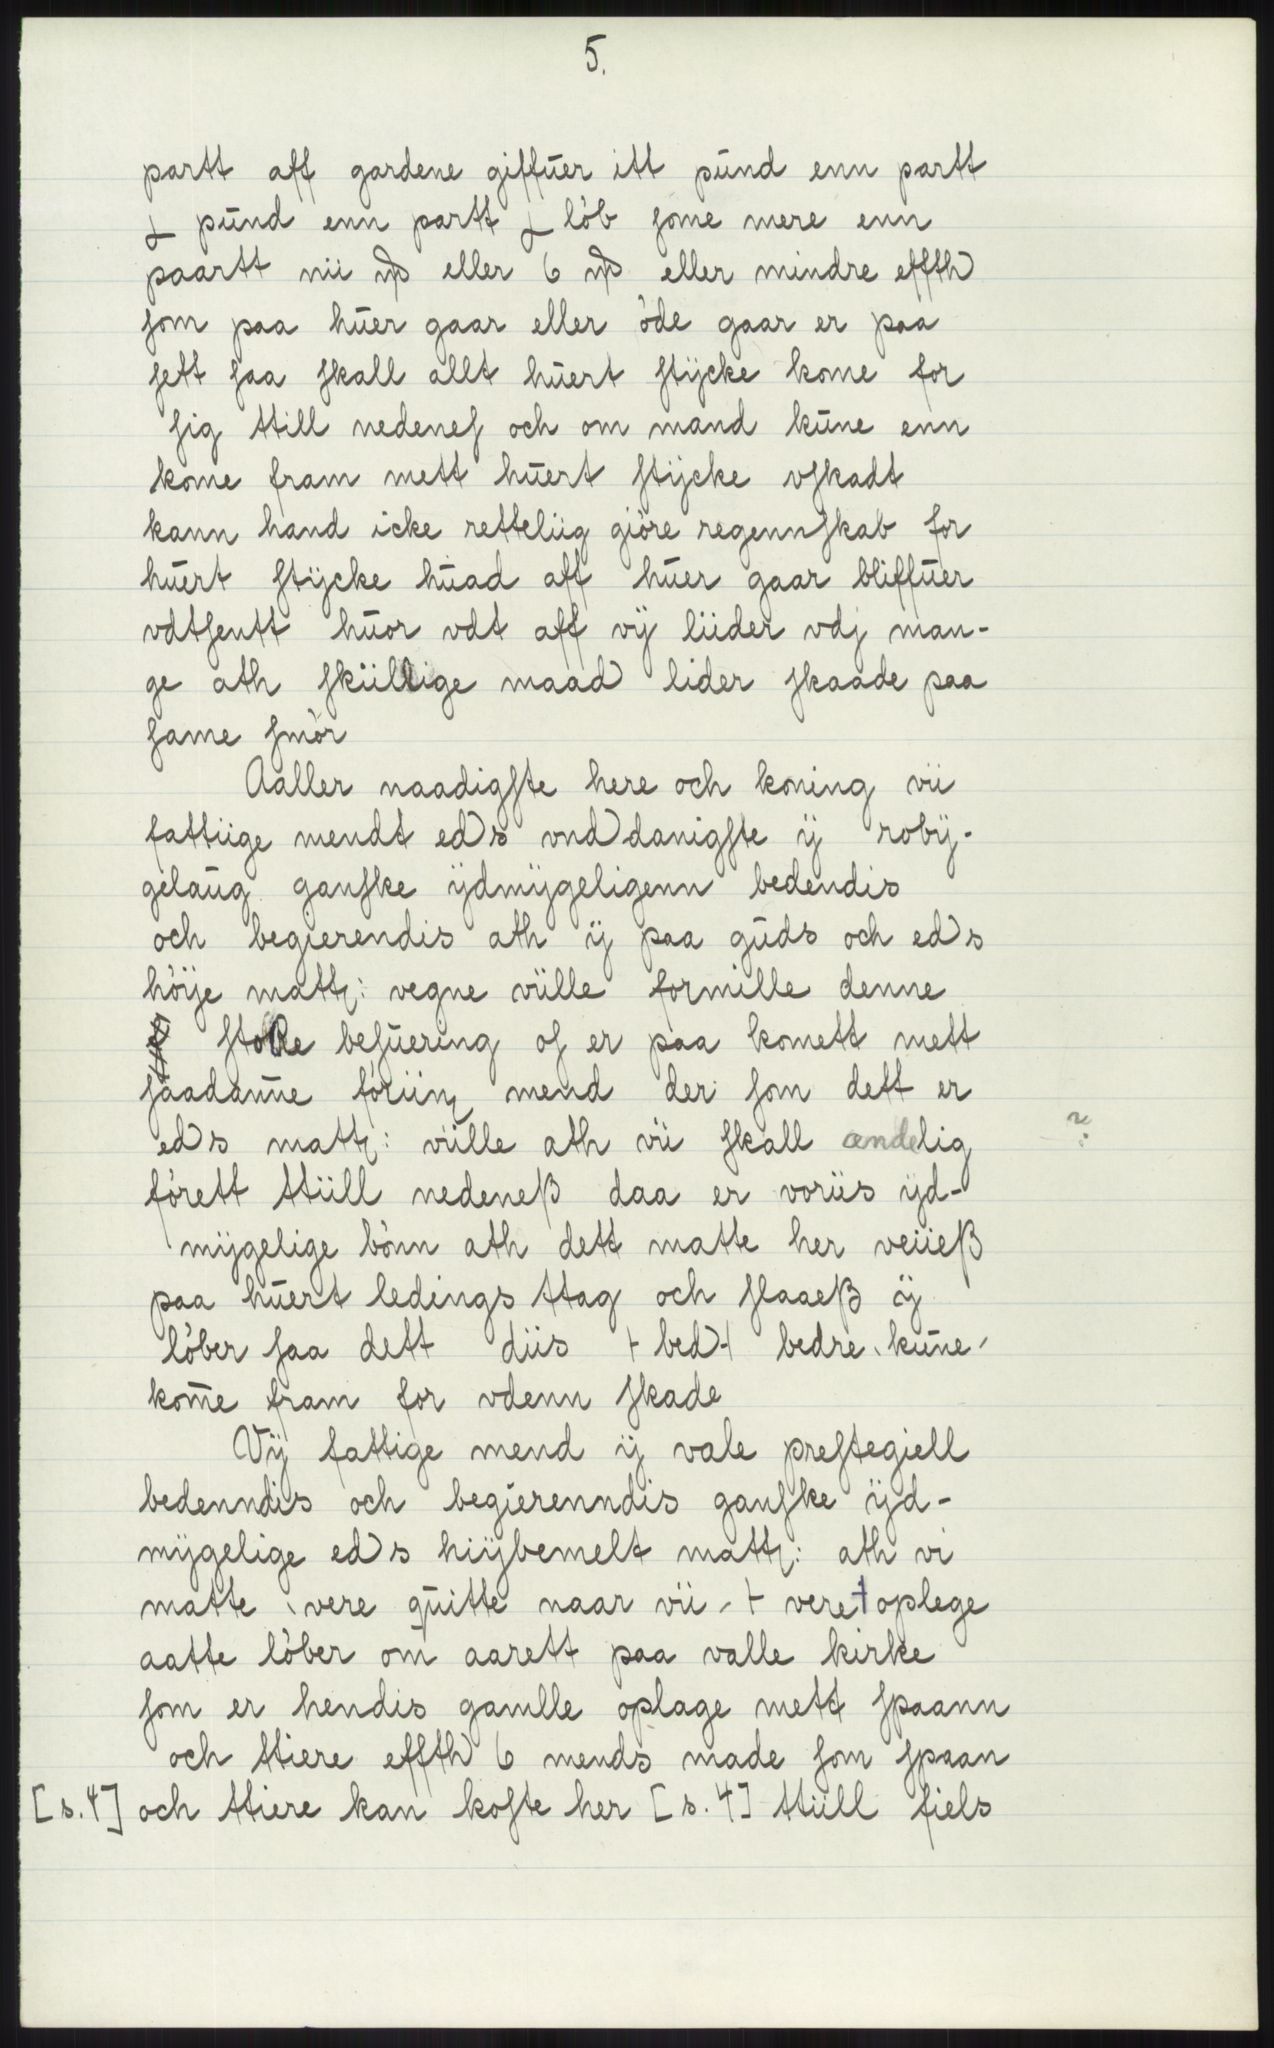 5.
partt aff gardene giffuer itt pund enn partt
pund enn partt løb some mere enn
paartt nii eller 6 eller mindre effth
som paa huer gaar eller øde gaar er paa
sett saa skall allt huert stÿcke kome for
sig ttill nedenes och om mand kune enn
kome fram mett huert stÿcke vskadt
kann hand icke retteliig giøre regennskab for
huert stÿcke huad aff huer gaar bliffuer
vdtsentt huor vdt aff vÿ liider vdj man-
ge ath skiillige maad lider skaade paa
same smør
Aaller naadigste here och koning vii
fattiige mendt eds vnddanigste ÿ robÿ-
gelaug ganske ÿdmÿgeligenn bedendis
och begierendis ath ÿ paa guds och eds
høÿe matt: vegne viille formille denne
store besuering os er paa komett mett
saadanne føriing mend der som dett er
eds matt: viille ath vii skall endelig ?
førett ttiill nedeneß daa er voriis ÿd-
mÿgelige bønn ath dett matte her veiieß
paa huert ledings ttag och slaaeß ÿ
løber saa dett diis + bed + bedre kune
kom̄e fram for vdenn skade
Vÿ fattige mend ÿ vale prestegiell
bedenndis och begierenndis ganske ÿd-
mÿgelige eds hiÿbemelt matt: ath vi
matte vere quitte naar vii + vere + oplege
aatte løber om̄ aarett paa valle kirke
som er hendis gamlle oplage mett spaann
och ttiere effth 6 mends made som spaan
[s. 4] och ttiere kan koste her [s. 4] ttiill fiels